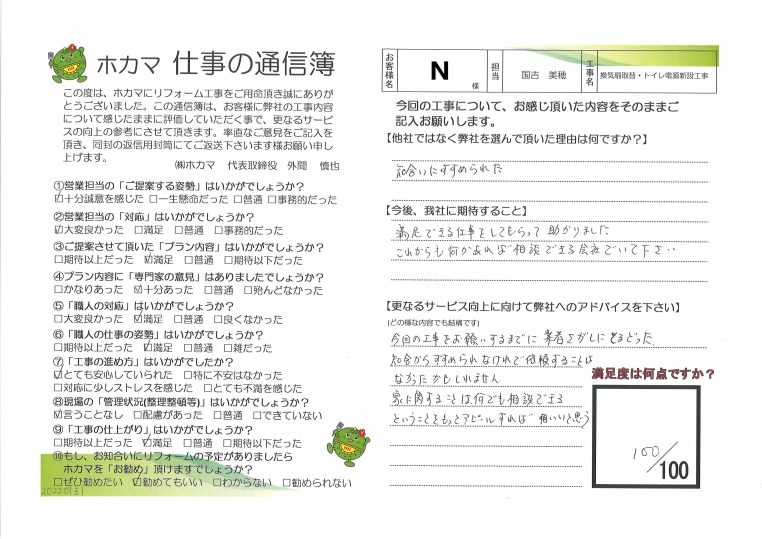 ホカマ 仕事の通信簿
この度は、ホカマにリフォーム工事をご用命頂き誠にありが
とうございました。この通信簿は、お客様に弊社の工事内容
について感じたままに評価していただく事で、更なるサービ
スの向上の参考にさせて頂きます。率直なご意見をご記入を
頂き、同封の返信用封筒にてご返送下さいます様お願い申し
上げます。
㈱ホカマ 代表取締役 外間 慎也
①営業担当の「ご提案する姿勢」はいかがでしょうか?
☑十分誠意を感じた □一生懸命だった □普通 □事務的だった
②営業担当の「対応」はいかがでしょうか?
☑大変良かった □満足 □普通 □事務的だった
③ご提案させて頂いた「プラン内容」はいかがでしょうか?
□期待以上だった ☑満足 □普通 □期待以下だった
④プラン内容に「専門家の意見」はありましたでしょうか?
□かなりあった ☑十分あった □普通 □殆んどなかった
⑤「職人の対応」はいかがでしょうか?
□大変良かった ☑満足 □普通 □良くなかった
⑥「職人の仕事の姿勢」はいかがでしょうか?
□期待以上だった ☑満足 □普通 □雑だった
⑦「工事の進め方」はいかがでしたか?
☑とても安心していられた □特に不安はなかった
□対応に少しストレスを感じた □とても不満を感じた
⑧現場の「管理状況(整理整頓等)」はいかがでしょうか?
☑言うことなし □配慮があった □普通 □できていない
⑨「工事の仕上がり」はいかがでしょうか?
□期待以上だった ☑満足 □普通 □期待以下だった
⑩もし、お知合いにリフォームの予定がありましたら
ホカマを「お勧め」頂けますでしょうか?
□ぜひ勧めたい ☑勧めてもいい □わからない □勧められない
20220131
お客様名 N 様 担当 国吉 美穂 工事名 換気扇取替・トイレ電源新設工事
今回の工事について、お感じ頂いた内容をそのままご
記入お願いします。
【他社ではなく弊社を選んで頂いた理由は何ですか?】
知合いにすすめられた
【今後、我社に期待すること】
満足できる仕事をしてもらって助かりました
これからも何かあれば相談できる会社でいて下さい
【更なるサービス向上に向けて弊社へのアドバイスを下さい】
(どの様な内容でも結構です)
今回の工事をお願いするまでに業者さがしにとまどった
知合からすすめられなければ依頼することは
なかったかもしれません
家に関することは何でも相談できる
ということをもっとアピールすれば良いと思う
満足度は何点ですか?
100/100